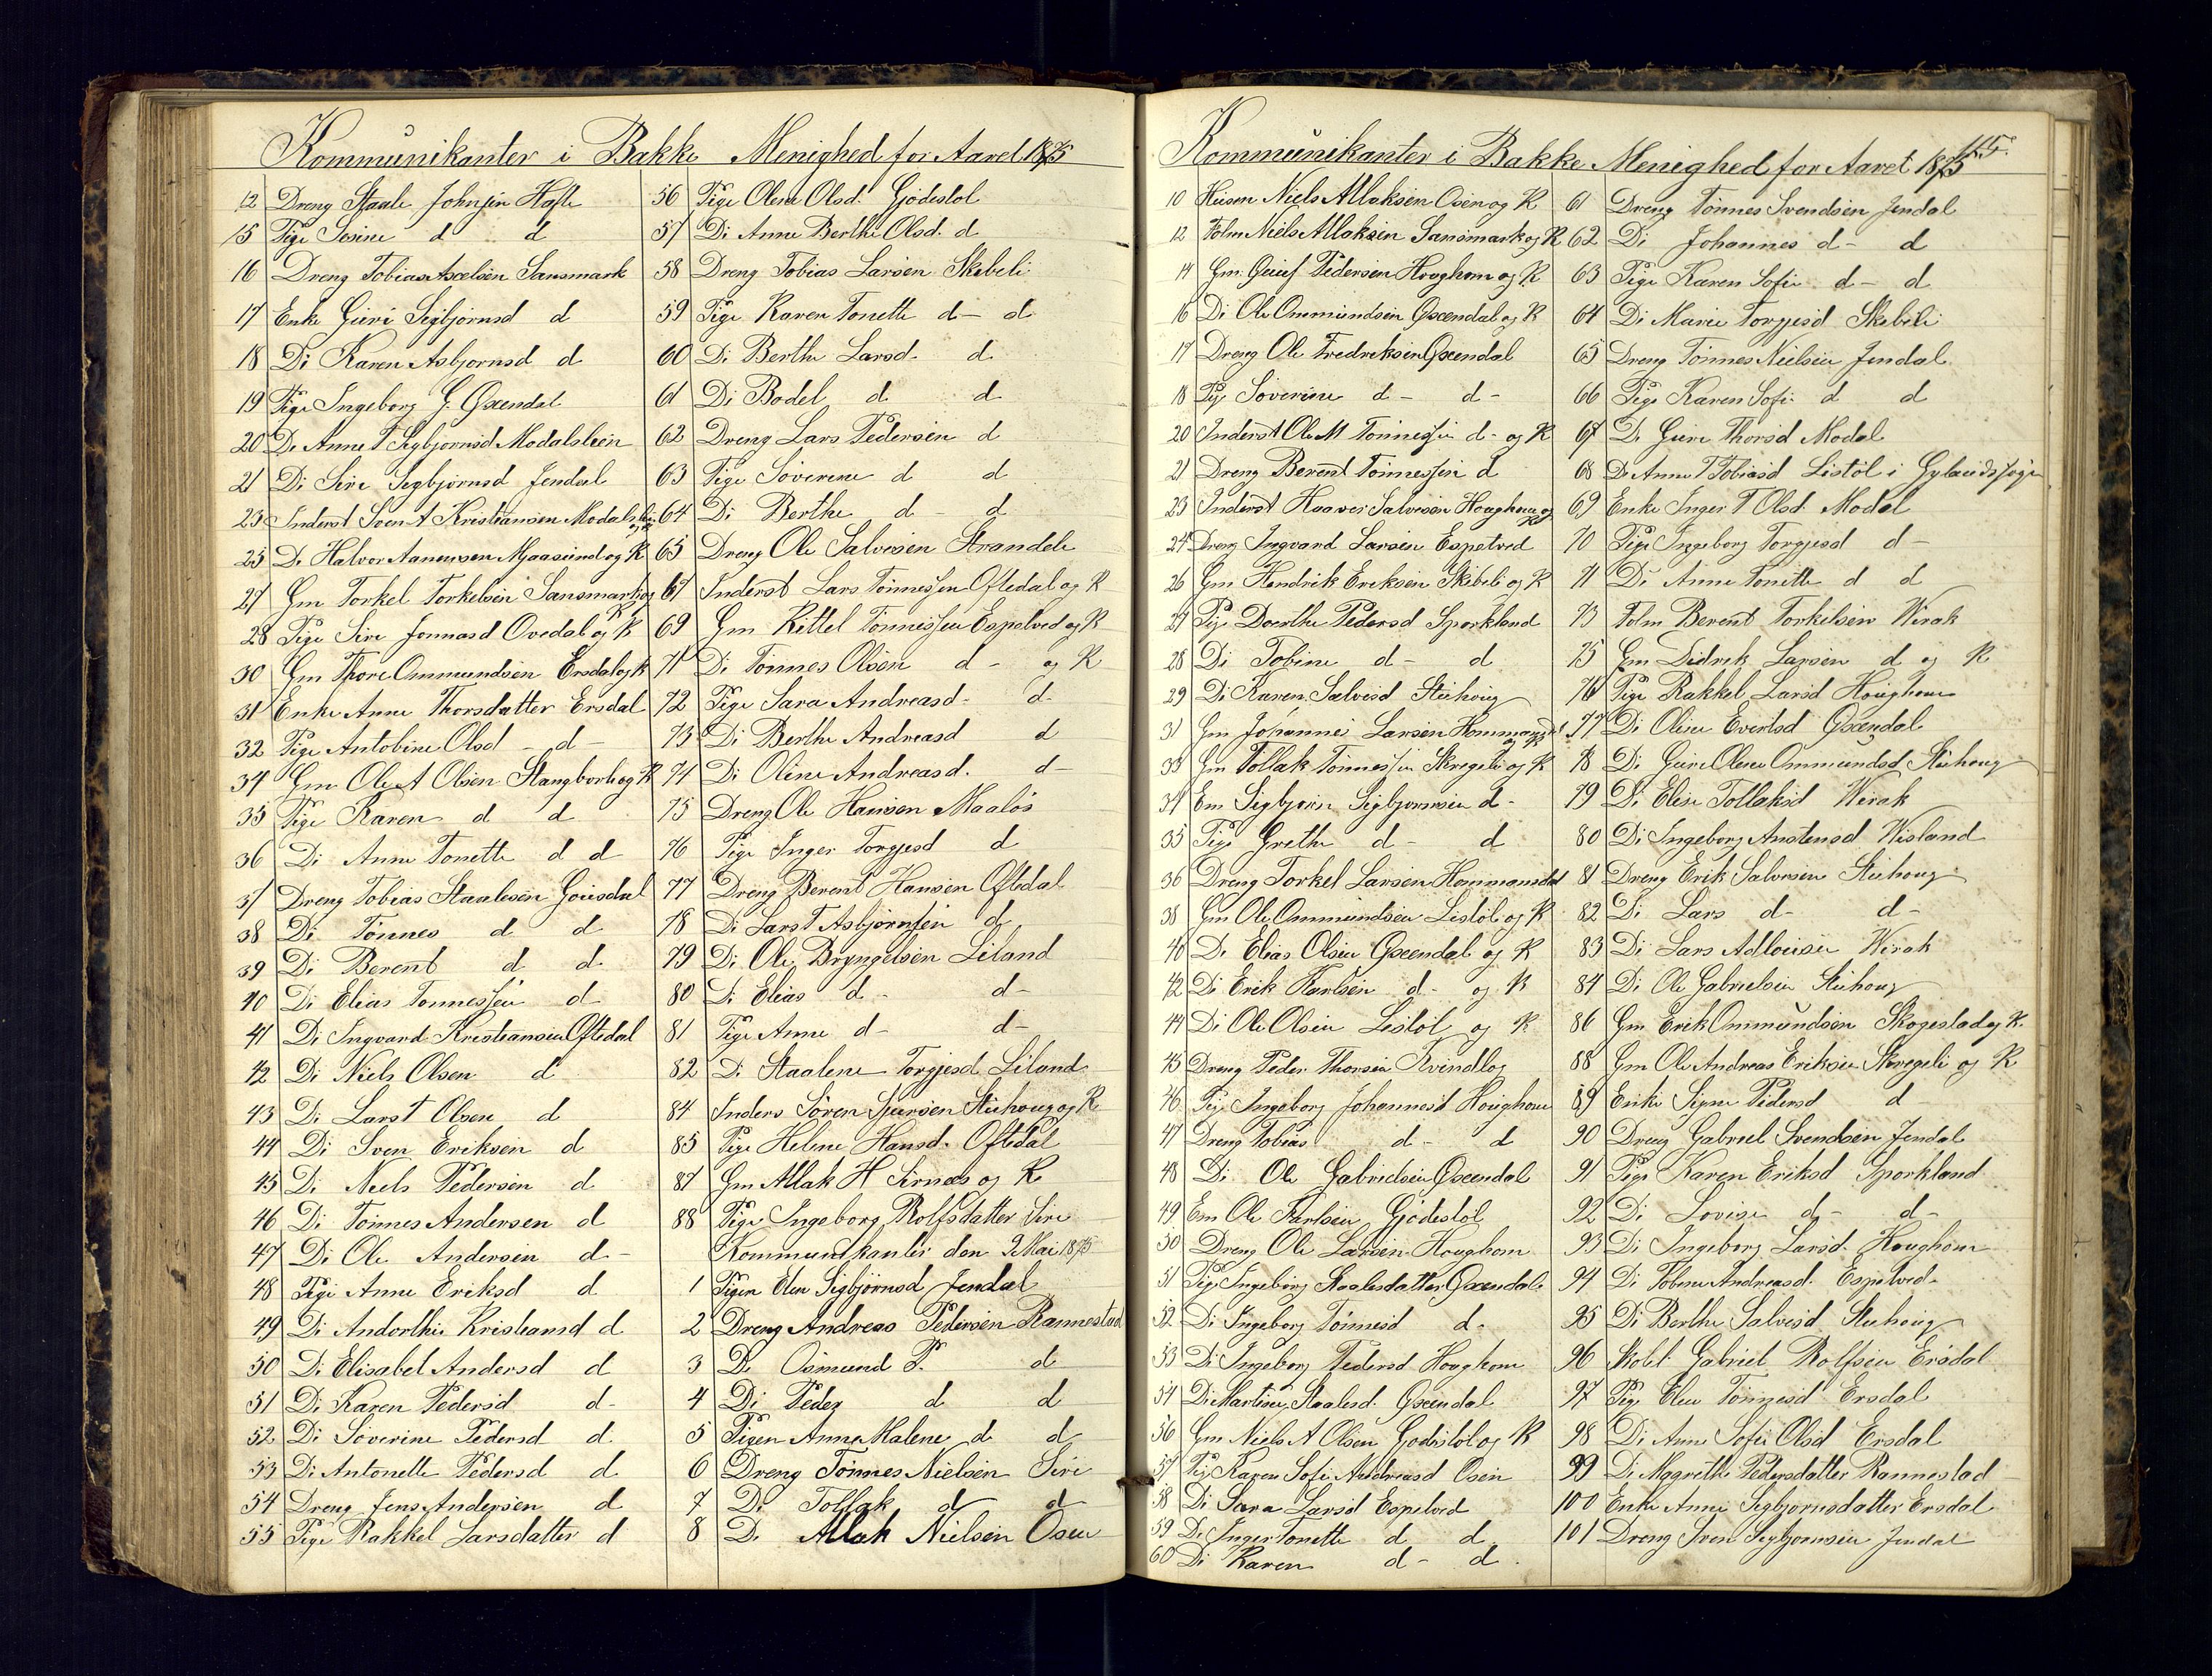 Kommunikanter i Bakke Menighed for Aaret 1875
12 Dreng Staale Johnsen Hafte
15 Pige Sosine d d
16 Dreng Tobias Axelsen Sansmark
17 Enke Guri Sigbjørnsd d
18 Di Karen Asbjørnsd d
19 Pige Ingeborg G. Gxendal
20 Di Anne T Sigbjørnsd Modalsleen
21 Di Siri Sigbjørnsd Jendal
23 Inderst Sven A Kristiansen
25 Di Halvor Aanensen Maasund og K
27 Gm Torkel Torkelsen Sansmark og K
28 Pige Siri Jonnasd Ovedal og K
30 Gm Thore Ommundsen Ersdal og K
31 Enke Anne Thorsdatter Ersdal
32 Pige Antobine Olsd d
34 Gm Ole A Olsen Stangborli og K
35 Pige Karen d d
36 Di Anne Tonette d d
37 Dreng Tobias Staalesen
38 Di Tönnes d d
39 Di Berent d d
40 Di Elias Tonnessen d
41 Di Ingvard Kristiansen Oftedal
42 Di Niels Olsen d
43 Di Lars T Olsen d
44 Di Sven Eriksen d
45 Di Niels Pedersen d
46 Di Tönnes Andersen d
47 Di Ole Andersen d
48 Pige Anne Eriksd d
49 Di Andorthe Kristiansd d
50 Di Elisabet Andersd d
51 Di Karen Pedersd d
52 Di Soverine Pedersd d
53 Di Antonette Pedersd d
54 Dreng Jens Andersen d
55 Pige Rakkel Larsdatter d
56 Pige Olene Olsd. Gjodestol
57 Di Anne Berthe Olsd. d
58 Dreng Tobias Larsen Skibeli
59 Pige Karen Tonette d d
60 Di Berthe Larsd. d
61 Di Bodel d d
62 Dreng Lars Pedersen d
63 Pige Soverine d d
64 Di Berthe d d
65 Dreng Ole Salvesen Strandeli
67 Inderst Lars Tönnessen Oftedal og K
69 Gm Kittel Tönnessen Espetved og K
71 Di Tönnes Olsen d og K
72 Pige Sara Andreasd. d
73 Di Berthe Andreasd d
74 Di Oline Andreasd. d
75 Dreng Ole Hansen Maalös
76 Pige Inger Torgjesd d
77 Dreng Berent Hansen Oftedal
78 Di Lars T Asbjørnsen d
79 Di Ole Bryngelsen Liland
80 Di Elias d d
81 Pige Anne d d
82 Di Staalene Torgjesd Liland
84 Inders Sören Sjursen Stuhoug og K
85 Pige Helene Hansd. Oftedal
87 Gm Atlak H Sirnæs og K
88 Pige Ingeborg Rolfsdatter Siri
Kommunikanter den 2 Mai 1875
1 Pigen Elen Sigbjørnsd Jendal
2 Dreng Andreas Pedersen Rannestad
3 Di Osmund P. d
4 Di Peder d d
5 Pigen Anne Malene d d
6 Dreng Tönnes Nielsen Siri
7 Di Tollak d d
8 Di Atlak Nielsen Osen
Kommunikanter i Bakke Menighed for Aaret 1875
115.
10 Husm Niels Atlaksen Osen og K
12 Folm Niels Atlaksen Sansmark og K
14 Gm. Pedersen Houghom og K
16 Di Ole Ommundsen Gxendal og K
17 Dreng Ole Fredreksen Gxendal
18 Pig Soverine d d
20 Inderst Ole M Tönnessen d og K
21 Dreng Berent Tönnessen d
23 Inderst Haaver Salvesen Houghom og K
24 Dreng Ingvard Larsen Espetved
26 Gm Hendrik Eriksen Skibeli og K
27 Pige Dorthe Pedersd Sporkland
28 Di Tobine d d
29 Di Karen Salvesd Stuhoug
31 Gm Johannes Larsen og K
33 Gm Tollak Tönnessen Skregeli og K
34 Em Sigbjørn Sigbjørnsen d
35 Pige Grethe d d
36 Dreng Torkel Larsen Hommansdal
38 Gm Ole Ommundsen Listöl og K
40 Di Elias Olsen Gxendal og K
42 Di Erik Karlsen d og K
44 Di Ole Olsen Listöl og K
45 Dreng Peder Thorsen Kvindlog
46 Pige Ingeborg Johannesd Houghom
47 Dreng Tobias d d
48 Di Ole Gabrielsen Gxendal
49 Em Ole Karlsen Gjodestöl
50 Dreng Ole Larsen Houghom
51 Pige Ingeborg Staalesdatter Gxendal
52 Di Ingeborg Tönnesd d
53 Di Ingeborg Pedersd Houghom
54 Di Martine Staalesd. Gxendal
56 Gm Niels A Olsen Godestöl og K
57 Pig Karen Sofi Andreasd Osen
58 Di Sara Larsd Espetved
59 Di Inger Tonette d d
60 Di Karen d d
61 Dreng Tönnes Svendsen Jendal
62 Di Johannes d d
63 Pige Karen Sofie d d
64 Di Marie Torgjesd Skibeli
65 Dreng Tönnes Nielsen Jendal
66 Pige Karen Sofi d d
67 Di Guri Thorsd Modal
68 Di Anne T Tobiasd Listöl i Gylandsogn
69 Enke Inger T Olsd. Modal
70 Pige Ingeborg Torgjesd d
71 Di Anne Tonette d d
73 Folm Berent Torkelsen Wirak
75 Gm Didrik Larsen d og K
76 Pige Rakkel Larsd Houghom
77 Di Oline Evertsd Gxendal
78 Di Guri Olene Ommundsd Stuhoug
79 Di Elise Tollaksd Wirak
80 Di Ingeborg Anstensd Wisland
81 Dreng Erik Salvesen Stuhoug
82 Di Lars d d
83 Di Lars Wirak
84 Di Ole Gabrielsen Stuhoug
86 Gm Erik Ommundsen Skogestad og K
88 Gm Ole Andreas Eriksen Skregeli og K
89 Enke Signe Pedersd d
90 Dreng Gabriel Svendsen Jendal
91 Pige Karen Eriksd Sporkland
92 Di Lovise d d
93 Di Ingeborg Larsd. Houghom
94 Di Tobine Andreasd. Espetved
95 Di Berthe Salvesd Stuhoug
96 Gabriel Rolfsen Ersdal
97 Pig Elen Tönnesd Ersdal
98 Di Anne Sofie Olsd Ersdal
99 Di Magrethe Pedersdatter Rannestad
100 Enke Anne Sigbjørnsdatter Ersdal
101 Dreng Sven Sigbjørnsen Jendal